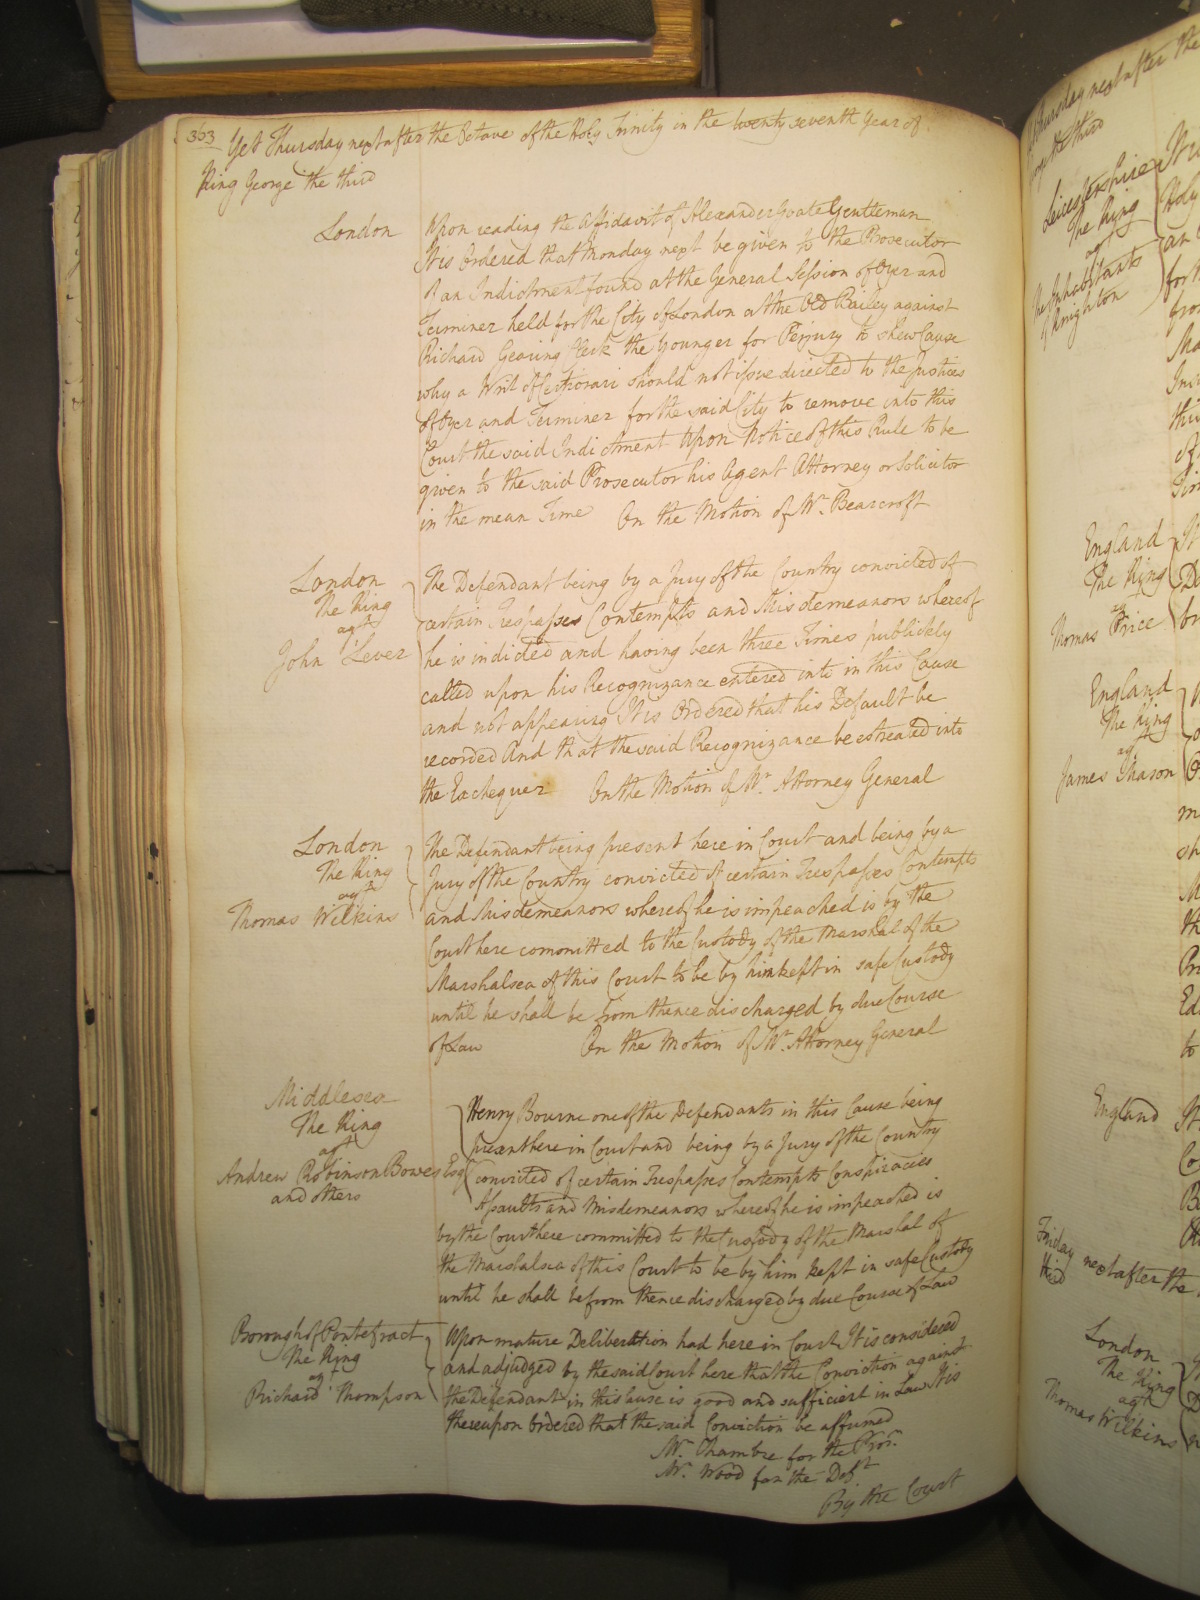 363 Yet Thursday next after the Octave of the Holy Trinity in the twenty seventh Year of
King George the third
London
Upon reading the Affidavit of Alexander Gentleman
It is Ordered that Monday next be given to the Prosecutor
of an Indictment found at the General Session of Oyer and
Terminer held for the City of London at the Old Bailey against
Richard Clerk the Younger for Perjury to shew Cause
why a Writ of Certiorari should not issue directed to the Justices
of Oyer and Terminer for the said City to remove into this
Court the said Indictment Upon Notice of this Rule to be
given to the said Prosecutor his Agent Attorney or Solicitor
in the mean Time On the Motion of Mr. Bearcroft
London
The King
agt
John Lever
The Defendant being by a Jury of the Country convicted of
certain Trespasses Contempts and Misdemeanors whereof
he is indicted and having been three Times publickly
called upon his Recognizance entered into in this Cause
and not appearing It is Ordered that his Default be
recorded And that the said Recognizance be estreated into
the Exchequer On the Motion of Mr. Attorney General
London
The King
agt
Thomas Wilkins
The Defendant being present here in Court and being by a
Jury of the Country convicted of certain Trespasses Contempts
and Misdemeanors whereof he is impeached is by the
Court here committed to the Custody of the Marshal of the
Marshalsea of this Court to be by him kept in safe Custody
until he shall be from thence discharged by due Course
of Law On the Motion of Mr. Attorney General
Middlesex
The King
agt
Andrew Robinson Bowes Esqr
and others
Henry Bourne one of the Defendants in this Cause being
present here in Court and being by a Jury of the Country
convicted of certain Trespasses Contempts Conspiracies
Assaults and Misdemeanors whereof he is impeached is
by the Court here committed to the Custody of the Marshal of
the Marshalsea of this Court to be by him kept in safe Custody
until he shall be from thence discharged by due Course of Law
Borough of Pontefract
The King
agt
Richard Thompson
Upon mature Deliberation had here in Court It is considered
and adjudged by the said Court here that the Conviction against
the Defendant in this Cause is good and sufficient in Law It is
thereupon Ordered that the said Conviction be affirmed
Mr. Chambre for the Prosr.
Mr. Wood for the Deft
By the Court
Thursday next after the
George the third
Leicestershire
The King
agt
The Inhabitants
of Knighton
England
The King
agt
Thomas Price
England
The King
agt
James Mason
England
Friday next after the
third
London
The King
agt
Thomas Wilkins